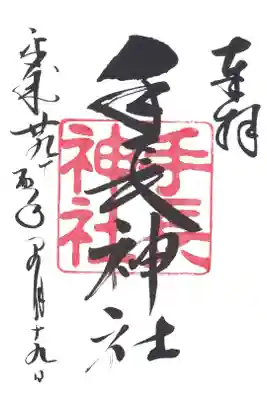 奉拝
手長神社
手長
神社
平成廿九丁酉年月十九日